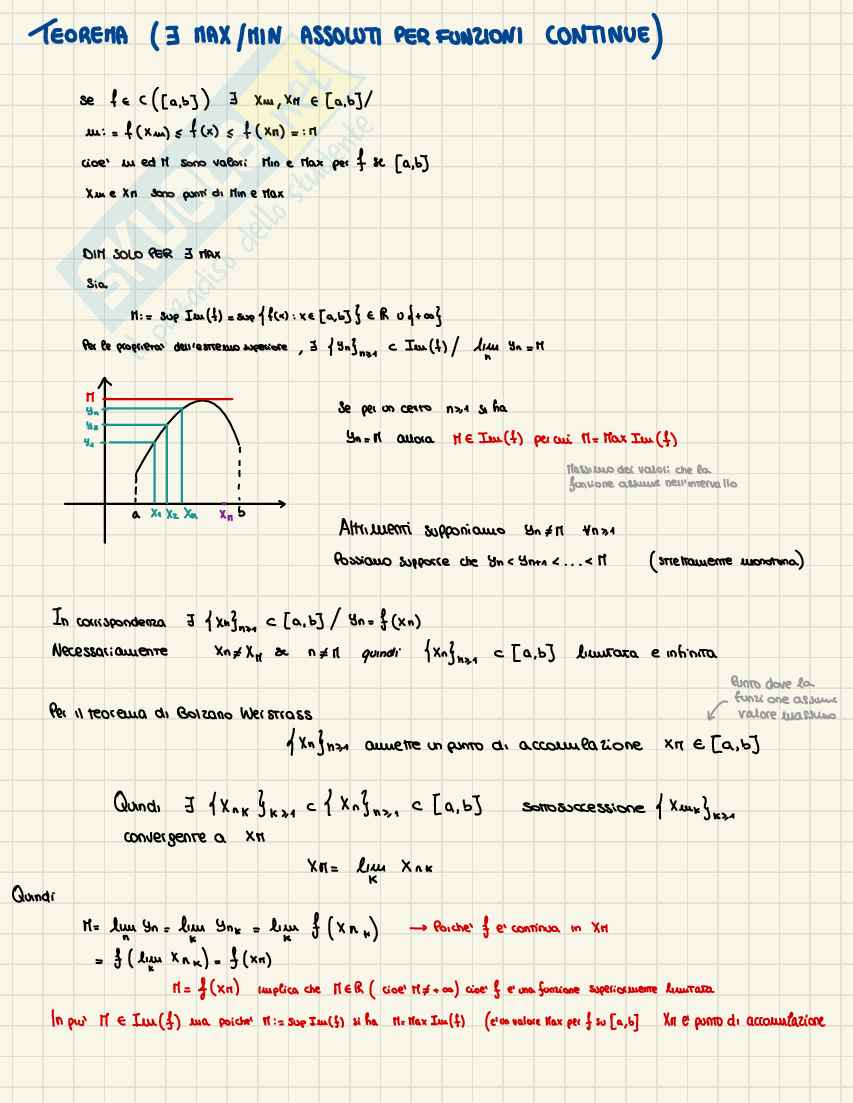 TEOREMA (∃ MAX/MIN ASSOLUTI PER FUNZIONI CONTINUE)
se f ∈ C([a,b]) ∃ xm, xM ∈ [a,b] /
m := f(xm) ≤ f(x) ≤ f(xM) =: M
cioe' m ed M sono valori Min e Max per f se [a,b]
xm e xM sono punti di Min e Max
DIM SOLO PER ∃ MAX
Sia
M := sup Im(f) = sup {f(x) : x ∈ [a,b]} ∈ R ∪ {+∞}
Per le proprieta' dell'estremo superiore, ∃ {yn}n≥1 ⊂ Im(f) / lim n yn = M
M
yn
y2
y1
a x1 x2 xn xM b
Se per un certo n≥1 si ha
yn = M allora M ∈ Im(f) per cui M = Max Im(f)
Massimo dei valori che la
funzione assume nell'intervallo
Altrimenti supponiamo yn ≠ M ∀n≥1
Possiamo supporre che yn < yn+1 < ... < M (strettamente monotona)
In corrispondenza ∃ {xn}n≥1 ⊂ [a,b] / yn = f(xn)
Necessariamente xn ≠ xM se n ≠ M quindi {xn}n≥1 ⊂ [a,b] limitata e infinita
Punto dove la
funzione assume
valore massimo
Per il teorema di Bolzano Weistrass
{xn}n≥1 ammette un punto di accomulazione xM ∈ [a,b]
Quindi ∃ {xnk}k≥1 ⊂ {xn}n≥1 ⊂ [a,b] sottosuccessione {xmk}k≥1
convergente a xM
xM = lim k xnk
Quindi
M = lim n yn = lim k ynk = lim k f(xnk) → Poiche' f e' continua in xM
= f(lim k xnk) = f(xM)
M = f(xM) implica che M ∈ R (cioe' M ≠ +∞) cioe' f e' una funzione superiormente limitata
In piu' M ∈ Im(f) ma poiche' M := sup Im(f) si ha M = Max Im(f) (e' un valore Max per f su [a,b] xM e' punto di accomulazione
SKUOLA.net
il paradiso dello studente